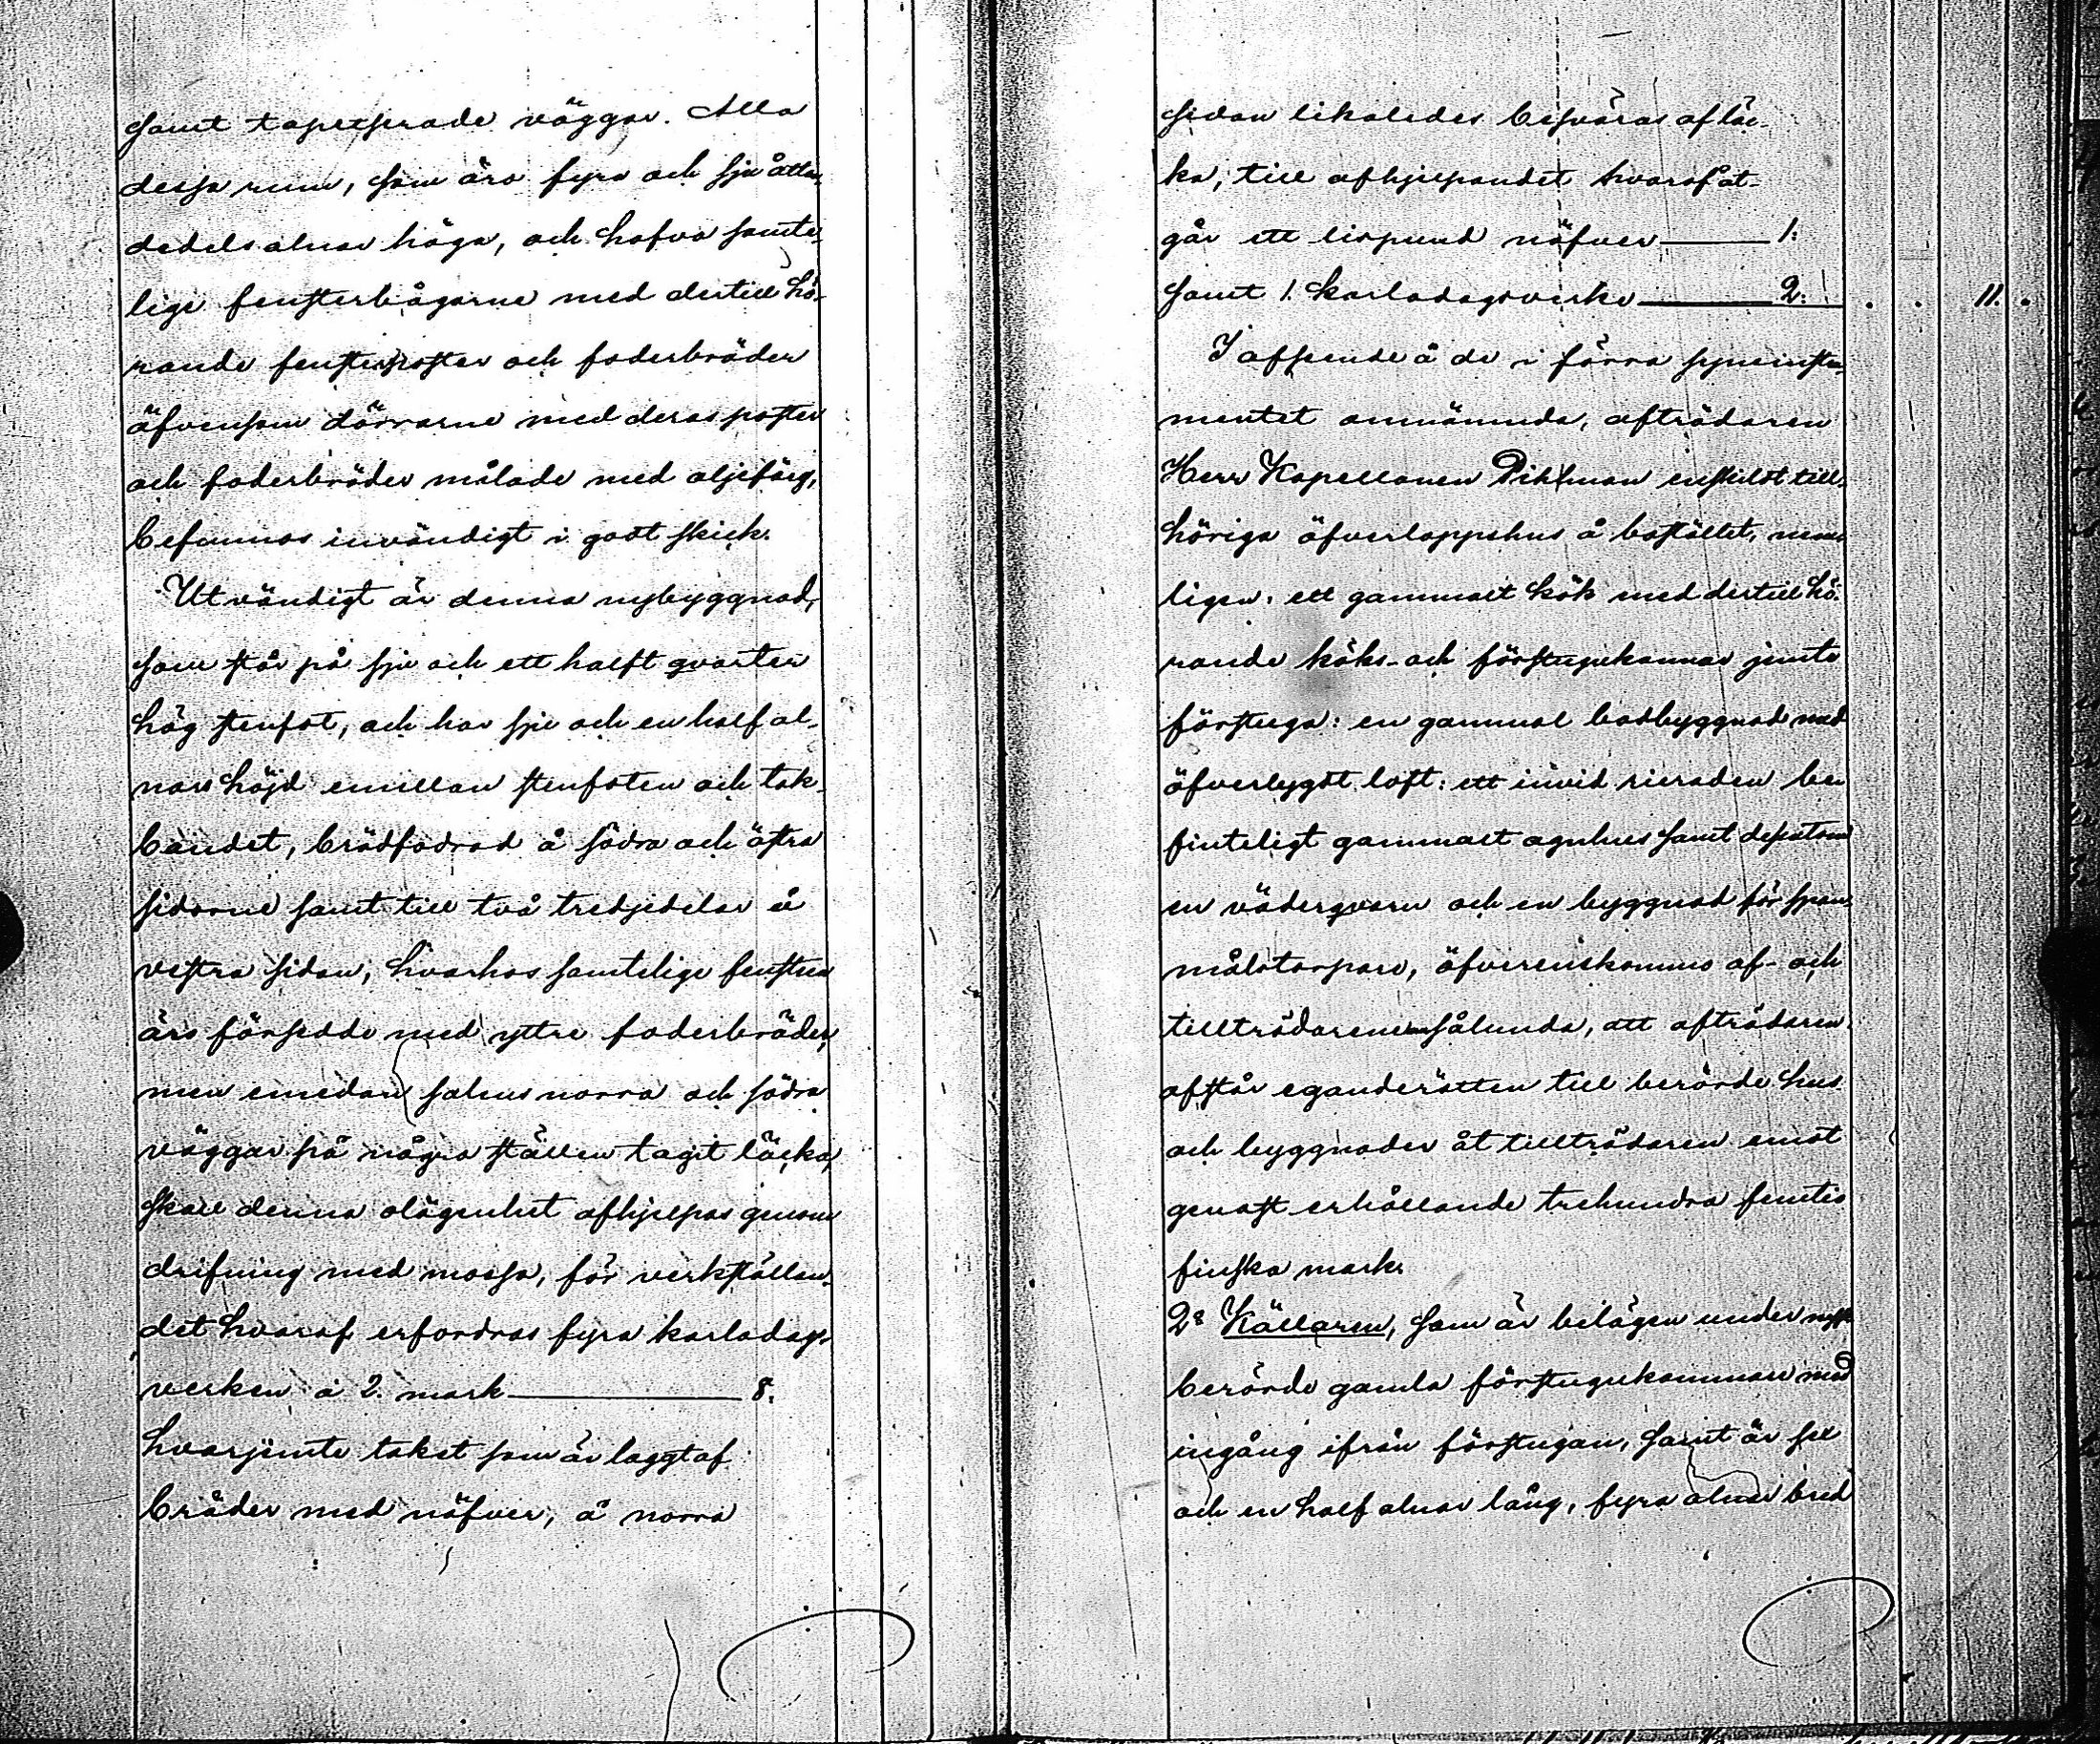 samt tapetserade väggar. Alla
dessa rum, som äro fyra och sju åtton-
dedels alnar höga, och hafva samte-
lige fensterbågarne med dertill hö-
rande fensterposter och foderbräder
äfvensom dörrarne med deras poster
och foderbräder målade med oljefärg,
befunnos invändigt i godt skick.
Utvändigt är denna nybyggnad,
som står på sju och ett halft qvarter
hög stenfot, och har sju och en half al-
nars höjd emellan stenfoten och tak-
bandet, brädfodrad å södra och östra
sidorne samt till två tredjedelar å
vestra sidan, hvarhos samtelige fenstren
äro försedde med yttre foderbräder,
men emedan salens norra och södra
väggar på några ställen tagit läcka,
skall denna olägenhet afhjelpas genom
drifning med mossa, för verkställan-
det hvaraf erfordras fyra karladags-
verken à 2. mark 8.
hvarjemte taket som är laggt af
bräder med näfver, å norra
sidan likaledes besväras af läc-
ka, till afhjelpandet hvaraf åt-
går ett lispund näfver 1.
samt 1. karladagsverke 2. . . 11. .
I afseende å de i förra syneinstru-
mentet omnämnda, afträdaren
Herr Kapellanen Pihlman enskildt till-
höriga öfverloppshus å bostället, nem-
ligen: ett gammalt kök med dertill hö-
rande köks- och förstugukamrar jemte
förstuga: en gammal bodbyggnad med
öfverbygdt loft: ett invid rieraden be-
finteligt gammalt agnhus samt dessutom
en väderqvarn och en byggnad för span-
målstorpare, öfverenskommo af- och
tillträdarene sålunda, att afträdaren
afstår eganderätten till berörde hus
och byggnader åt tillträdaren emot
genast erhållande trehundra femtio
finska mark.
2º Källaren, som är belägen under nyss-
berörde gamla förstugukammare med
ingång ifrån förstugan, samt är sex
och en half alnar lång, fyra alnar bred